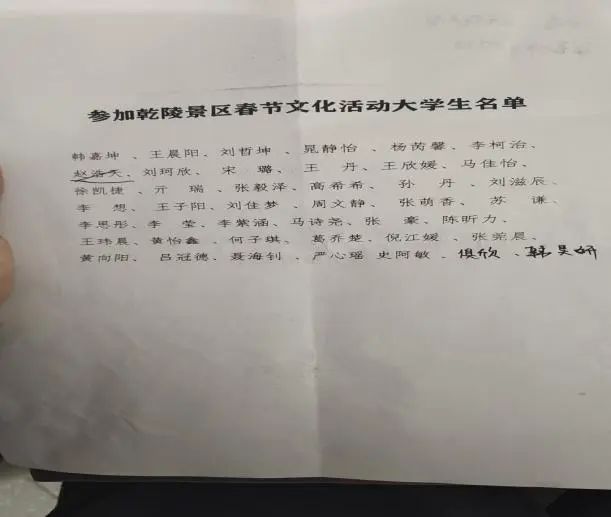 参加乾陵景区春节文化活动大学生名单
韩嘉坤、王晨阳、刘哲坤、晁静怡、杨芮馨、李柯治、
赵浩天、刘珂欣、宋璐、王丹、王欣媛、马佳怡、
徐凯捷、亓瑞、张毅泽、高希希、孙丹、刘滋辰、
李想、王子阳、刘佳梦、周文静、张萌香、苏谦、
李思彤、李莹、李紫涵、马诗尧、张豪、陈昕力、
王玮晨、黄怡鑫、何子琪、葛乔楚、倪江媛、张尧晨、
黄向阳、吕冠德、聂海钊、严心瑶 史阿敏、俱欣、韩昊妍